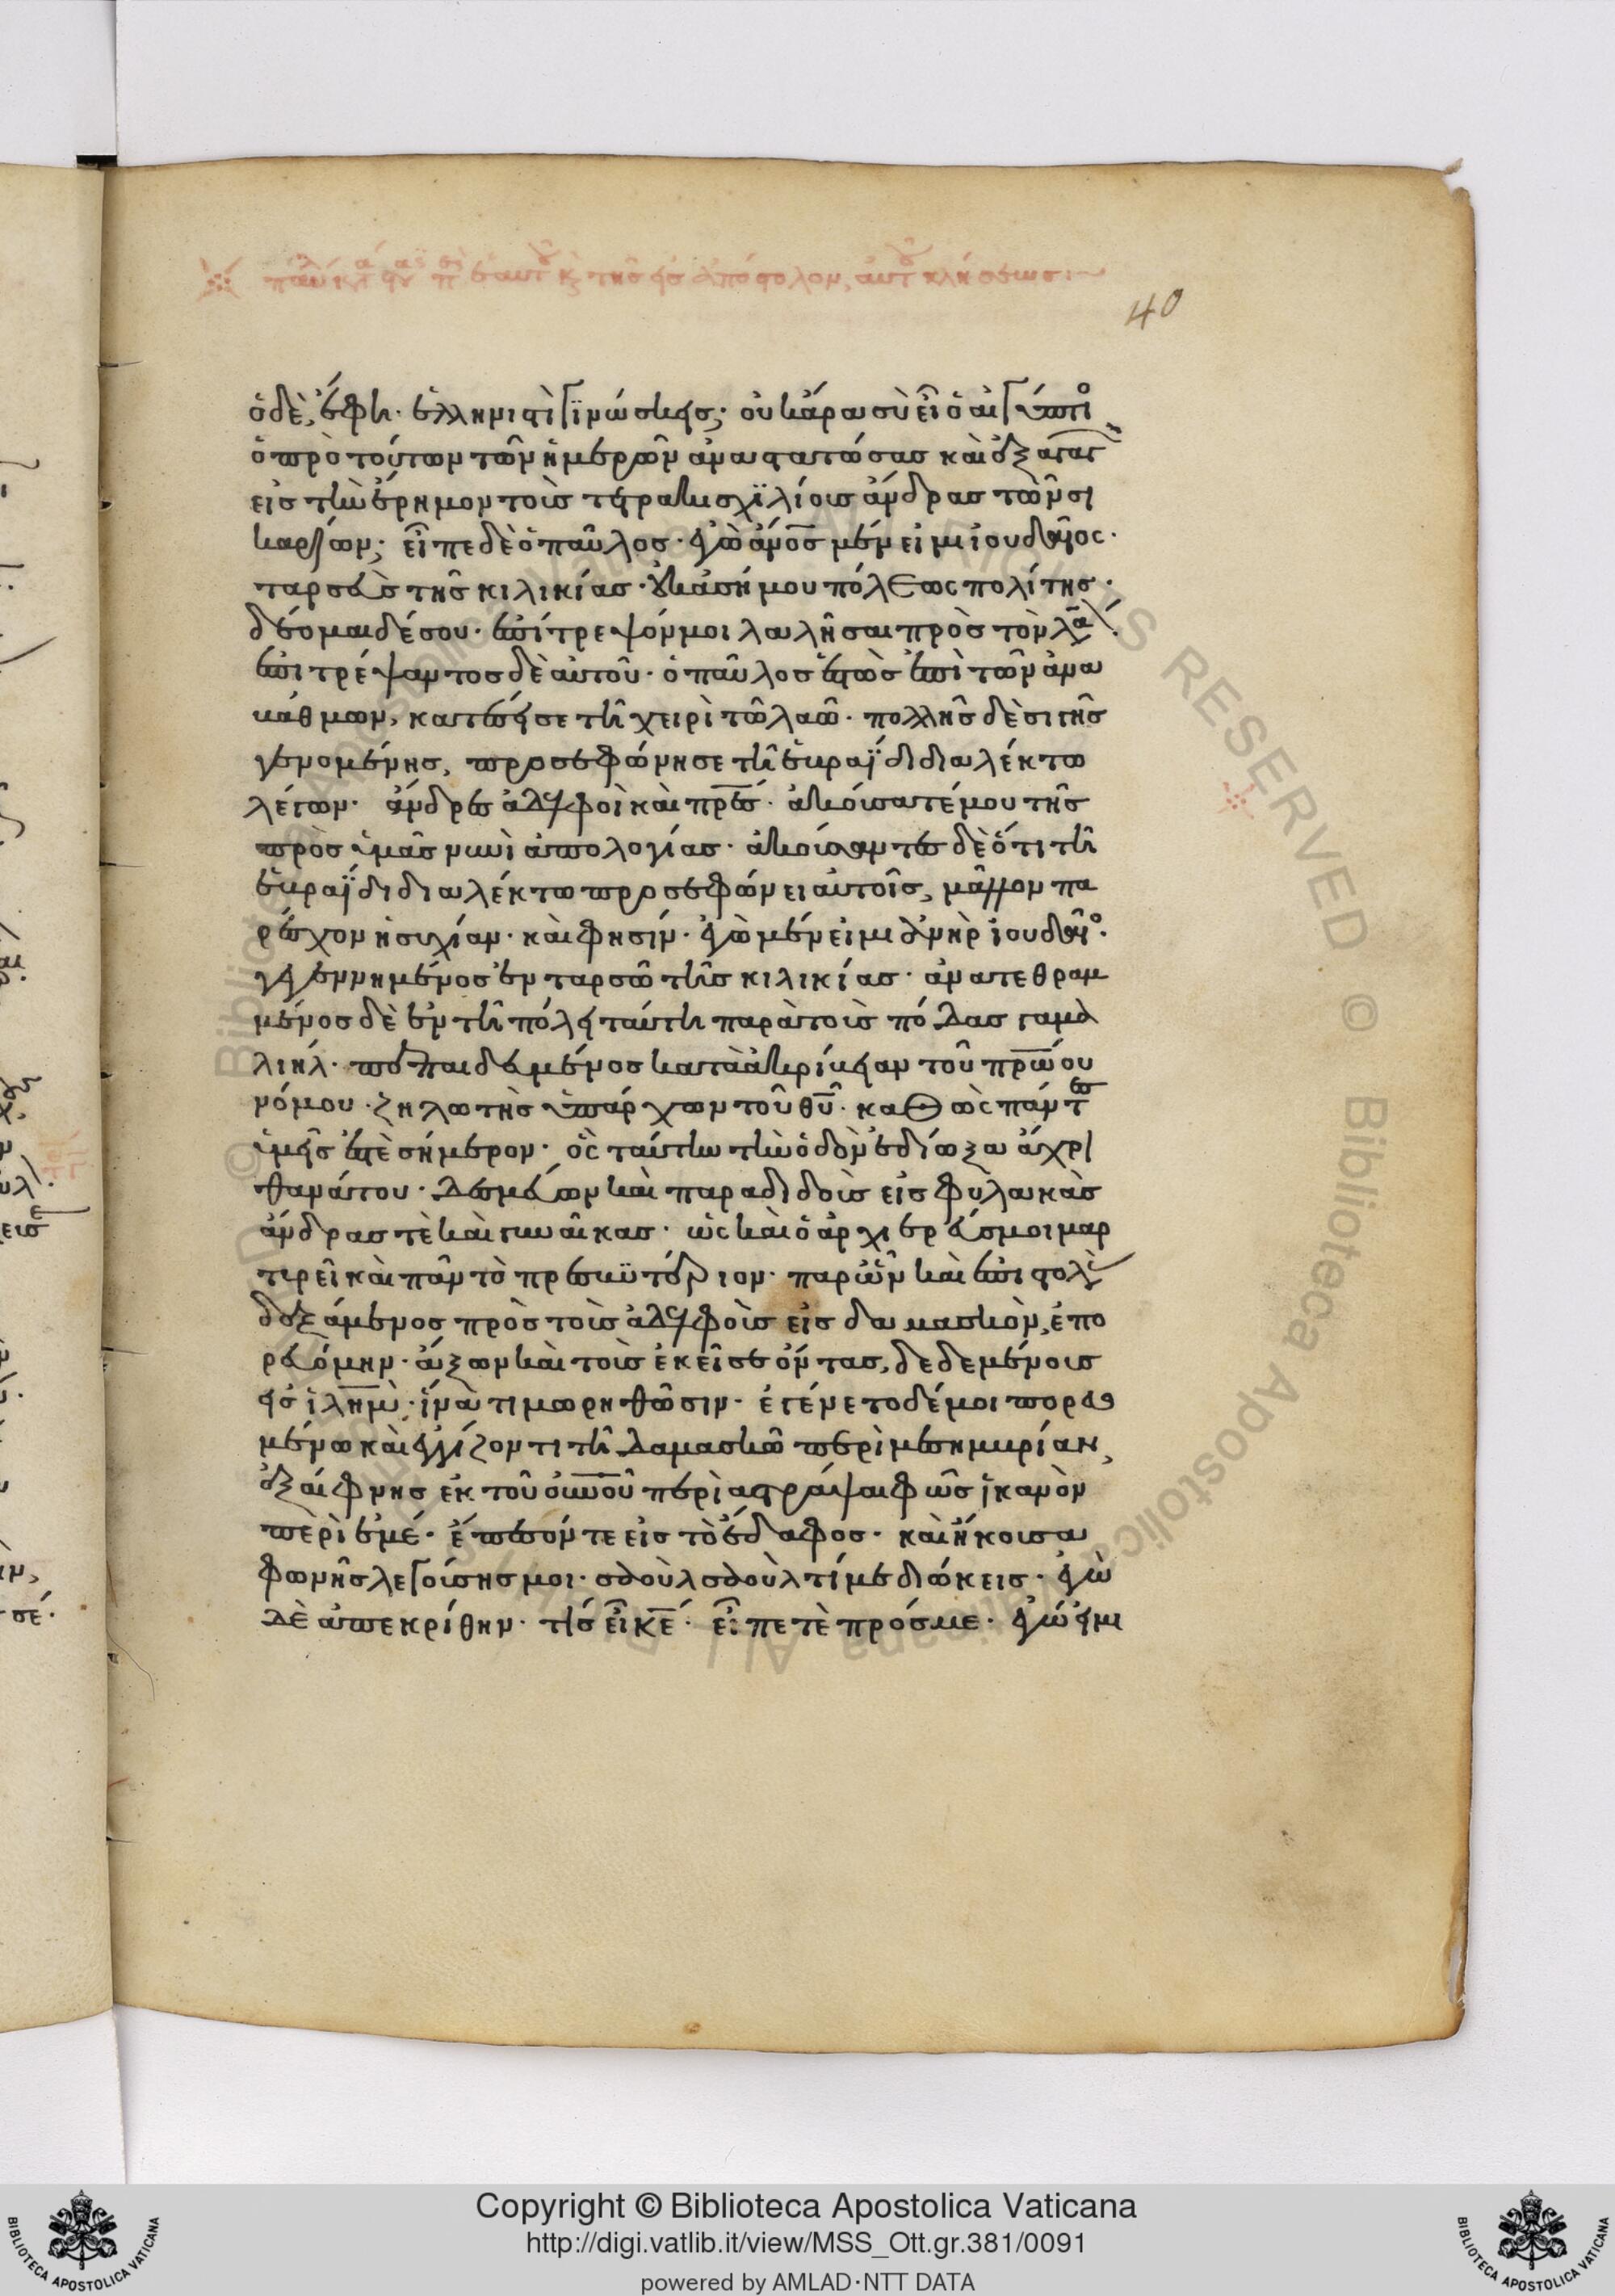 40
ὁ δὲ, ἔφη· ἑλληνιστὶ γϊνώσκεις; οὐκ ἄρα σὺ εἶ ὁ αἰγύπτιο
ὁ πρὸ τούτων τῶν ἡμερῶν ἀναστατώσας καὶ ἐξαγαγ
εἰς τὴν ἔρημον τοὺς τετρακισχϊλίους ἄνδρας τῶν σι
καρίων; εἶπε δὲ ὁ παῦλος· ἐγὼ ἄνος μέν εἰμι ἰουδαῖος·
ταρσεὺς τῆς κιλικίας· οὐκ ἀσήμου πόλεως πολίτης·
δέομαι δέ σου· ἐπίτρεψόν μοι λαλῆσαι πρὸς τὸν λα
ἐπιτρέψαντος δὲ αὐτοῦ· ὁ παῦλος ἑστὼς ἐπὶ τῶν ἀνα
βάθμων, κατέσεισε τῆ χειρὶ τῶ λαῶ· πολλῆς δὲ σιγῆς
γενομένης, προσεφώνησε τῆ ἑβραΐδι διαλέκτω
λέγων· ἄνδρες ἀδελφοὶ καὶ πρες· ἀκούσατέ μου τῆς
πρὸς ὑμᾶς νυνὶ ἀπολογίας· ἀκούσαντες δὲ ὅτι τῆ
ἑβραΐδι διαλέκτω προσεφώνει αὐτοῖς, μᾶλλον πα
ρέσχον ἡσυχίαν· καὶ φησίν· ἐγὼ μέν εἰμι ἀνὴρ ἰουδαῖο·
γεγεννημένος ἐν ταρσῶ τῆς κιλικίας· ἀνατεθραμ
μένος δὲ ἐν τῆ πόλει ταύτη παρὰ τοὺς πόδας γαμα
λιηλ· πεπαιδευμένος κατὰ ἀκρίβειαν τοῦ πρώου
νόμου· ζηλωτὴς ὑπάρχων τοῦ θυ· καθὼς πάντες
ὑμεῖς ἐστὲ σήμερον· ὃς ταύτην τὴν ὁδὸν ἐδίωξα ἄχρι
θανάτου· δεσμεύων καὶ παραδιδοὺς εἰς φυλακὰς
ἄνδρας τὲ καὶ γυναῖκας· ὡς καὶ ὁ ἀρχιερεύς μοι μαρ
τυρεῖ καὶ πᾶν τὸ πρεσβϋτέριον· παρ ὧν καὶ ἐπιστολὰς
δεξάμενος πρὸς τοὺς ἀδελφοὺς εἰς δαμασκὸν, ἐπο
ρευόμην· ἄξων καὶ τοὺς ἐκεῖσε ὄντας, δεδεμένους
εἰς ἰλημ· ἵνα τιμωρηθῶσιν· ἐγένετο δέ μοι πορευο
μένω καὶ ἐγγίζοντι τῆ δαμασκῶ περὶ μεσημβρίαν,
ἐξαίφνης ἐκ τοῦ οὐνοῦ περὶαστράψαι φῶς ἱκανὸν
περὶ ἐμέ· ἔπεσόν τε εἰς τὸ ἔδαφος· καὶ ἤκουσα
φωνῆς λεγούσης μοι· σαοὺλ σαοὺλ τί με διώκεις· ἐγὼ
δὲ ἀπεκρίθην· τίς εἶ κε· εἶπε τὲ πρός με· ἐγώ εἰμι
Copyright © Biblioteca Apostolica Vaticana
http://digi.vatlib.it/view/MSS_Ott.gr.381/0091
powered by AMLAD·NTT DATA